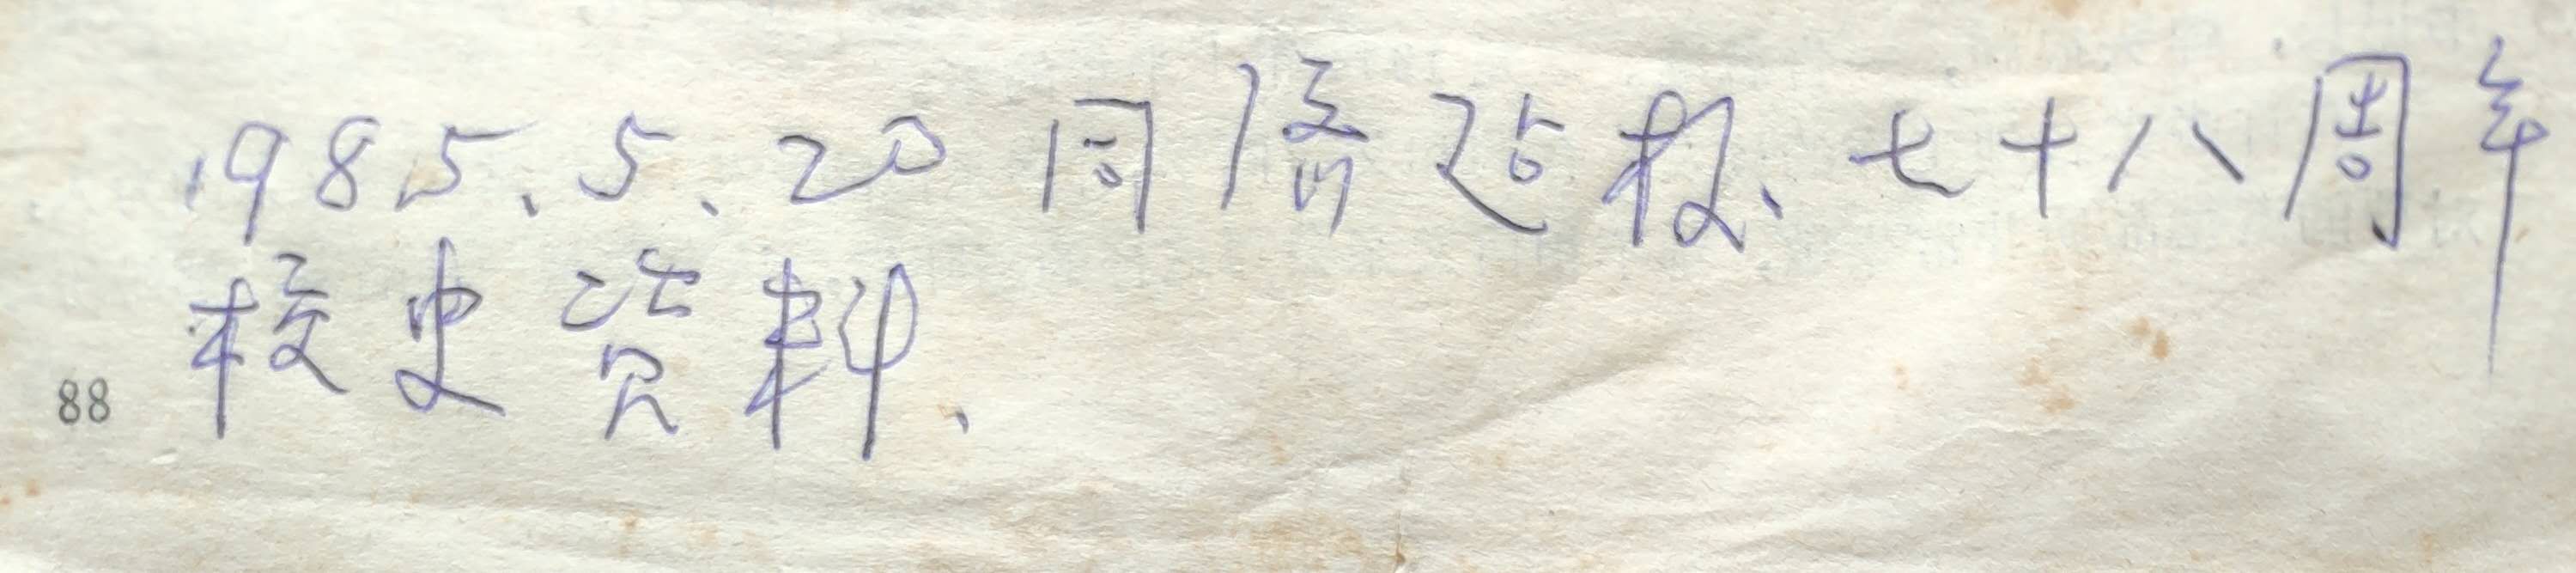 1985.5.20 同济建校、七十八周年
校史资料、
88